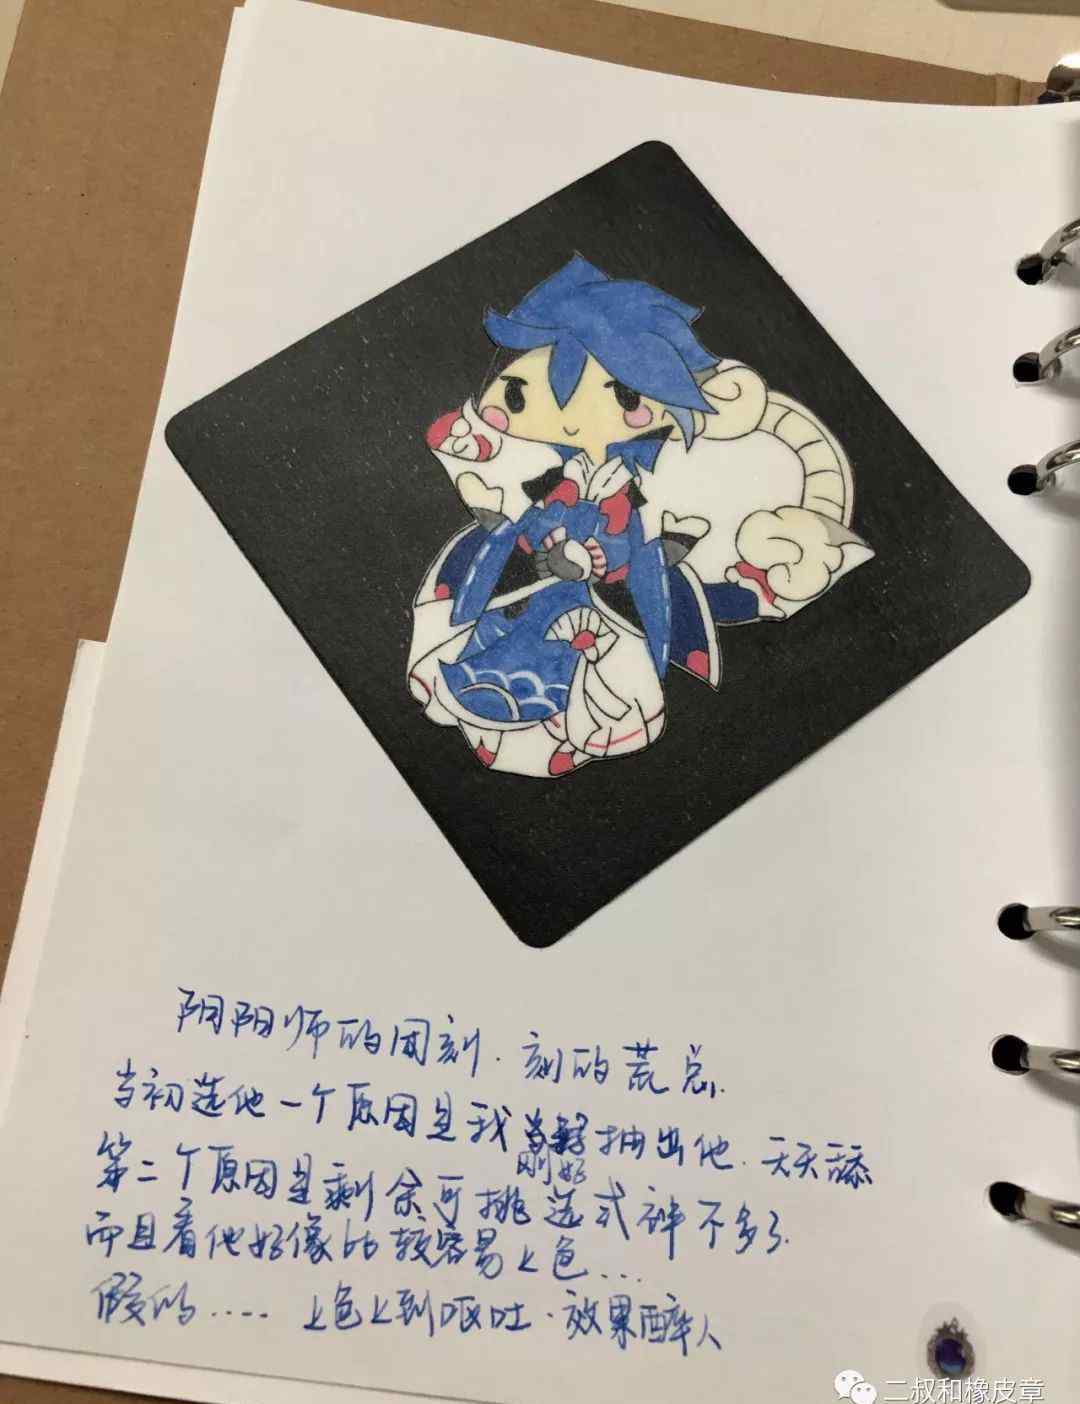 阴阳师的团刻. 刻的荒总.
当初选他一个原因是我刚好抽出他. 天天舔
第二个原因是剩余可挑选式神不多了.
而且看他好像比较容易上色...
假的..... 上色上到呕吐. 效果醉人
二叔和橡皮章